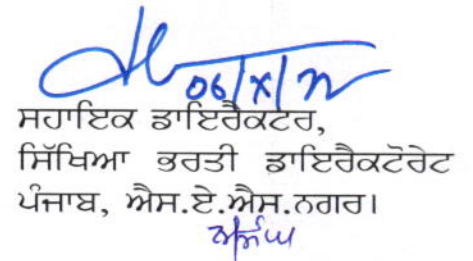 06/X/22
ਸਹਾਇਕ ਡਾਇਰੈਕਟਰ,
ਸਿੱਖਿਆ ਭਰਤੀ ਡਾਇਰੈਕਟੋਰੇਟ
ਪੰਜਾਬ, ਐਸ.ਏ.ਐਸ.ਨਗਰ।